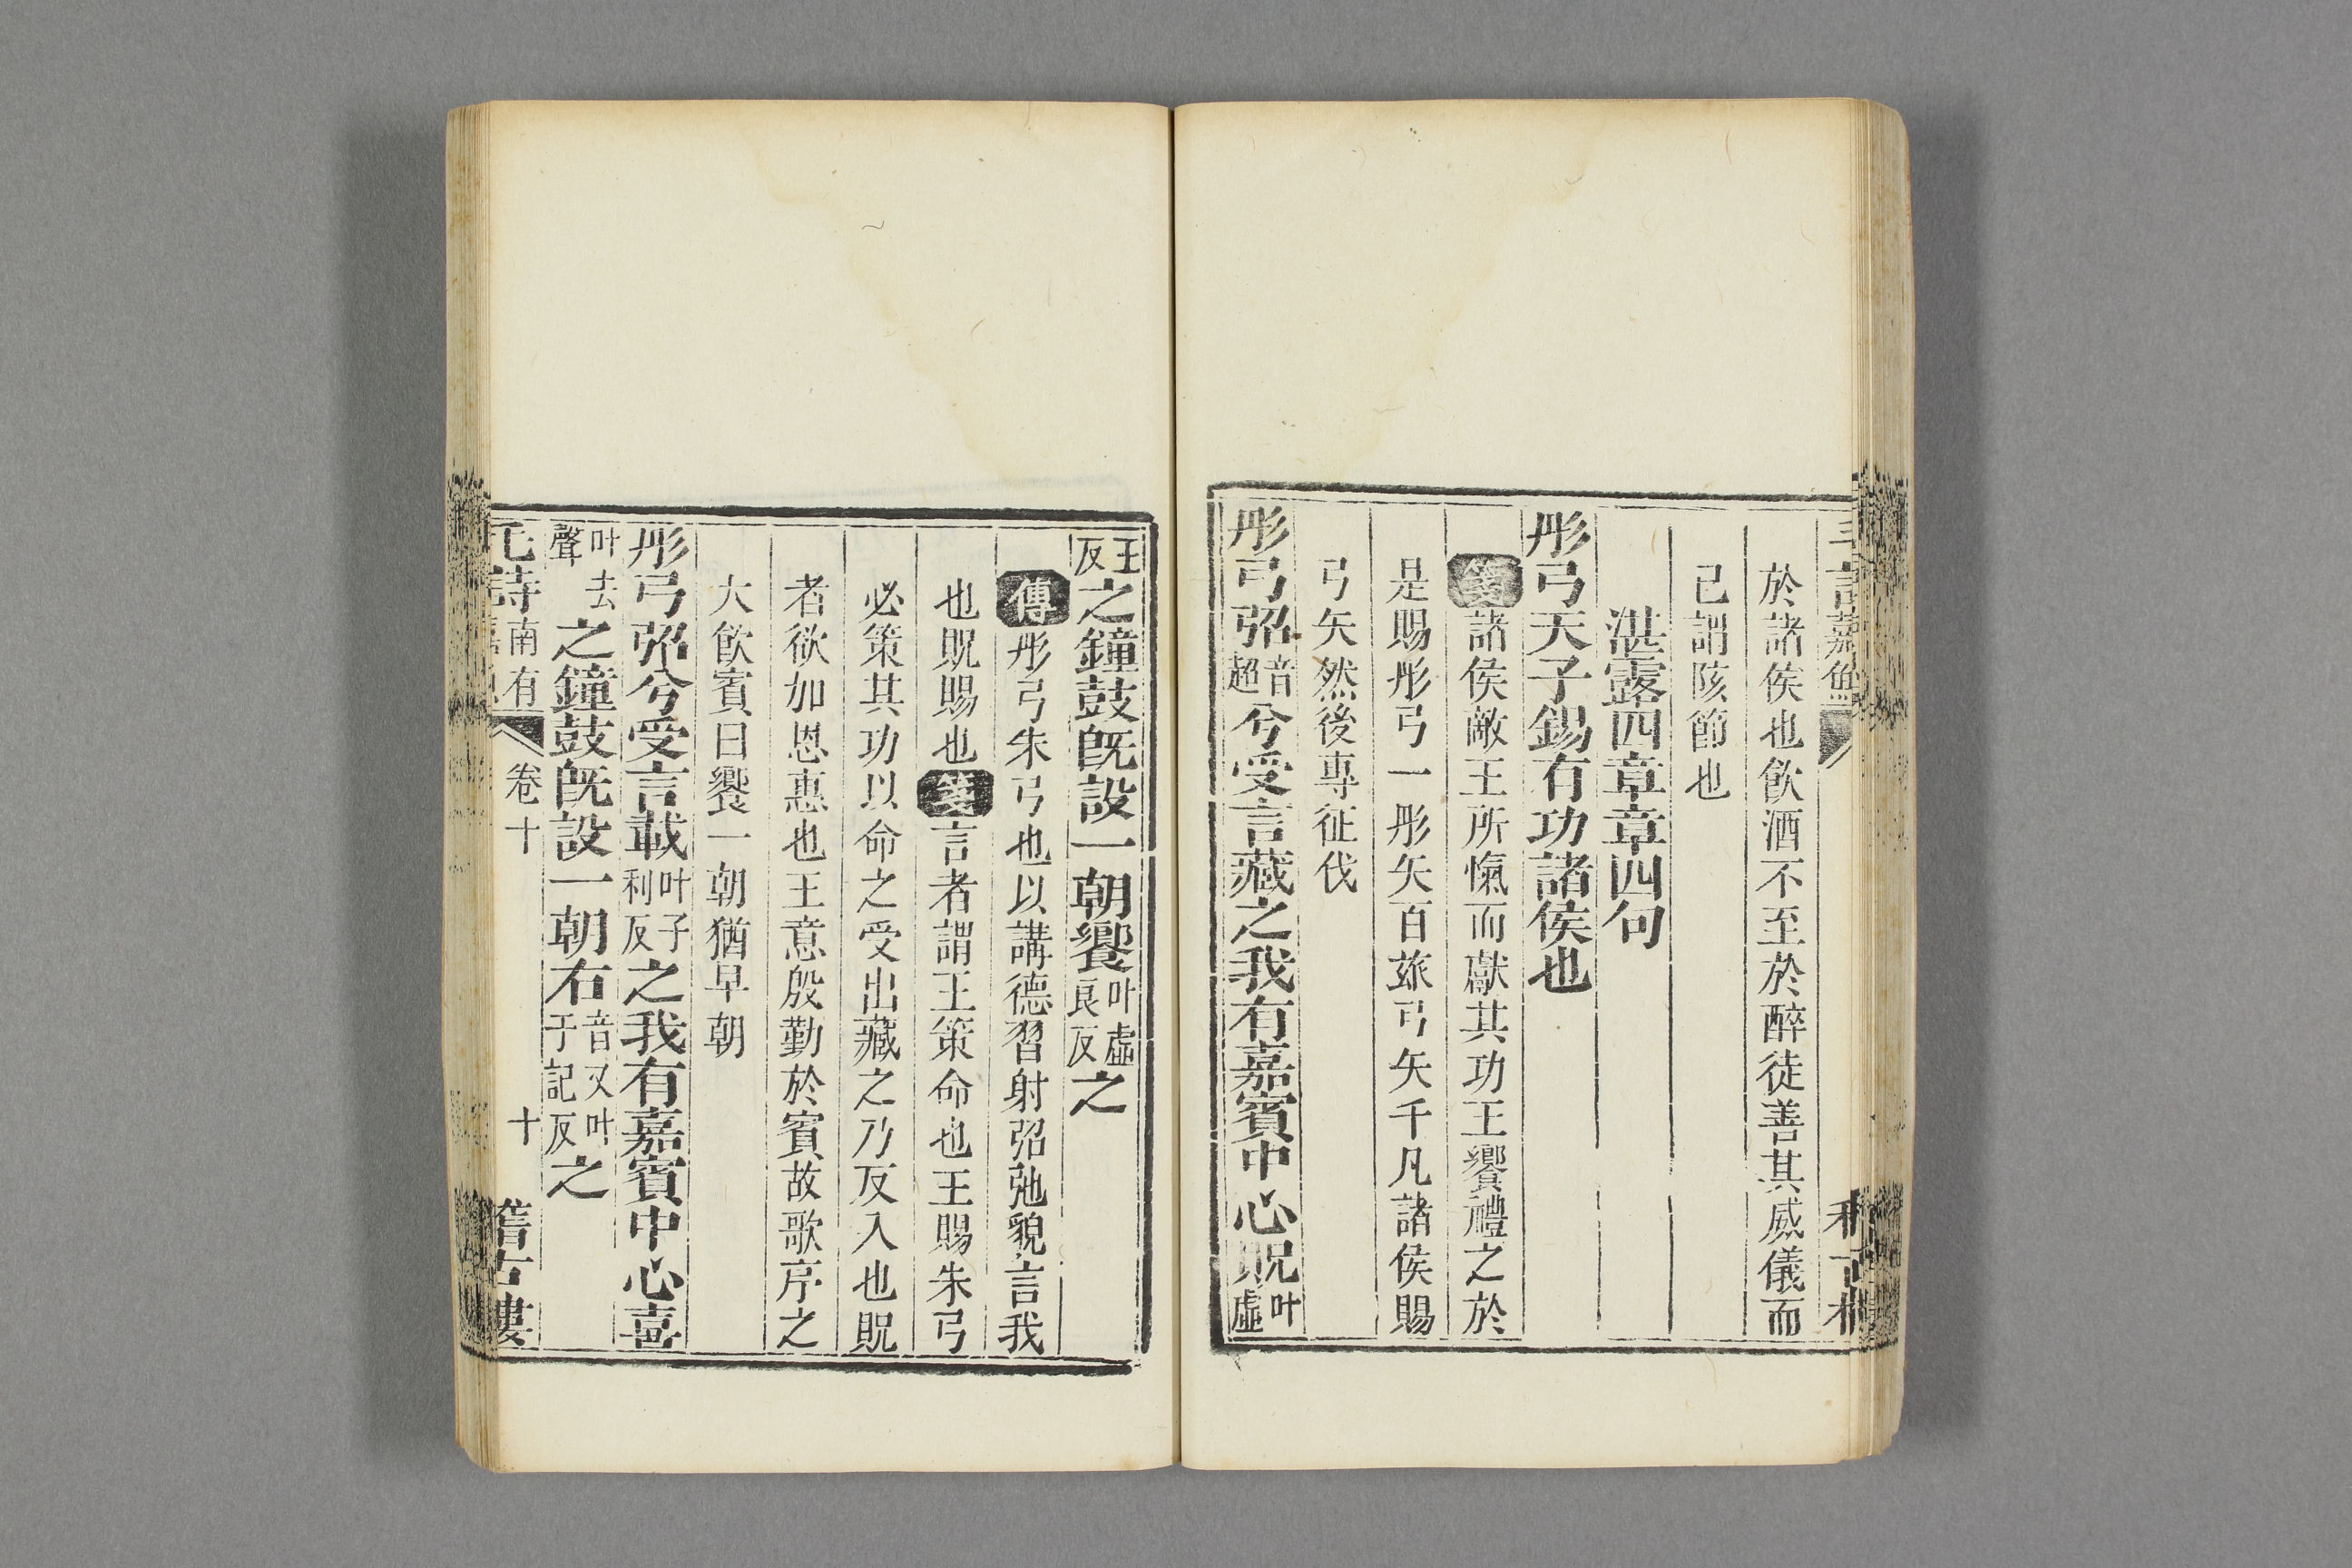 於諸侯也飮酒不至於醉徒善其威儀而
已謂陔節也
湛露四章章四句
彤弓天子錫有功諸侯也
箋諸侯敵王所愾而獻其功王饗禮之於
是賜彤弓一彤矢百玈弓矢千凡諸侯賜
弓矢然後專征伐
彤弓弨音超兮受言藏之我有嘉賓中心貺叶虛
王反之鐘鼓旣設一朝饗叶虛良反之
傳彤弓朱弓也以講德習射弨弛貌言我
也貺賜也箋言者謂王策命也王賜朱弓
必策其功以命之受出藏之乃反入也貺
者欲加恩惠也王意殷勤於賓故歌序之
大飮賓曰饗一朝猶早朝
彤弓弨兮受言載叶子利反之我有嘉賓中心喜
叶去聲之鐘鼓旣設一朝右音又叶于記反之
毛詩南有 卷十 十